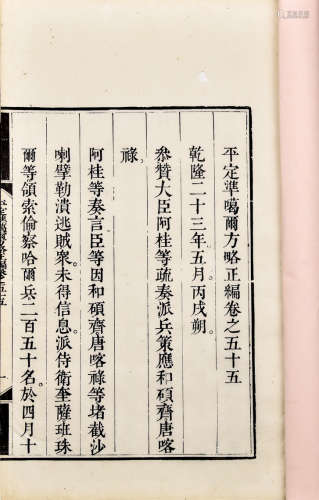 平定準噶爾方略正編卷之五十五
乾隆二十三年五月丙戌朔
參贊大臣阿桂等疏奏派兵策應和碩齊唐喀
祿
阿桂等奏言臣等因和碩齊唐喀祿等堵截沙
喇擘勒潰逃賊衆未得信息派侍衛奎薩班珠
爾等領索倫察哈爾兵二百五十名於四月十